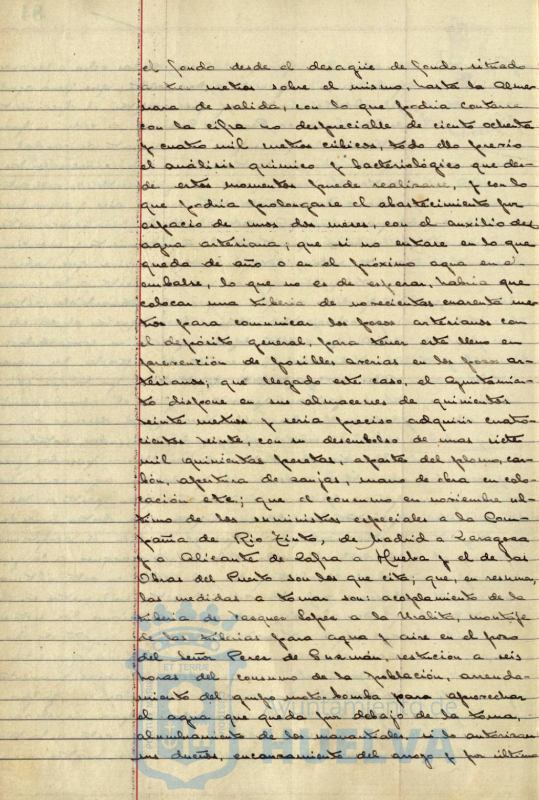 el fondo desde el desagüe de fondo, situado
a tres metros sobre el mismo, hasta la Alme-
nara de salida, con lo que podia contarse
con la cifra no despreciable de ciento ochenta
y cuatro mil metros cúbicos, todo ello previo
el análisis quimico y bacteriológico que des-
de estos momentos puede realizarse, y con lo
que podria prolongarse el abastecimiento por
espacio de unos dos meses, con el auxilio del
agua artesiana; que si no entrase en lo que
queda de año o en el próximo agua en el
embalse, lo que no es de esperar, habria que
colocar una tuberia de novecientos cuarenta me-
tros para comunicar los pozos artesianos con
el depósito general, para tener este lleno en
prevención de posibles averias en los pozos ar-
tesianos; que llegado este caso, el Ayuntamien-
to dispone en sus almacenes de quinientos
veinte metros y seria preciso adquirir cuatro-
cientos veinte, con un desembolso de unas siete
mil quinientas pesetas, aparte del plomo, car-
bón, apertura de zanjas, mano de obra en colo-
cación etc; que el consumo en noviembre úl-
timo de los suministros especiales a la Com-
pañia de Rio Tinto, de Madrid a Zaragoza
y a Alicante de Zafra a Huelva y el de las
Obras del Puerto son los que cita; que, en resumen,
las medidas a tomar son: acoplamiento de la
tuberia de Vazquez Lopez a la Uralita, montaje
de las tuberias para agua y aire en el pozo
del Señor Perez de Guzmán, restricion a seis
horas del consumo de la población, arrenda-
miento del grupo moto-bomba para aprovechar
el agua que queda por debajo de la toma,
alumbramiento de los manantiales, si lo autorizan
sus dueños, encauzamiento del arroyo y por último
ET TERRIE
Ayuntamiento de
HUELVA